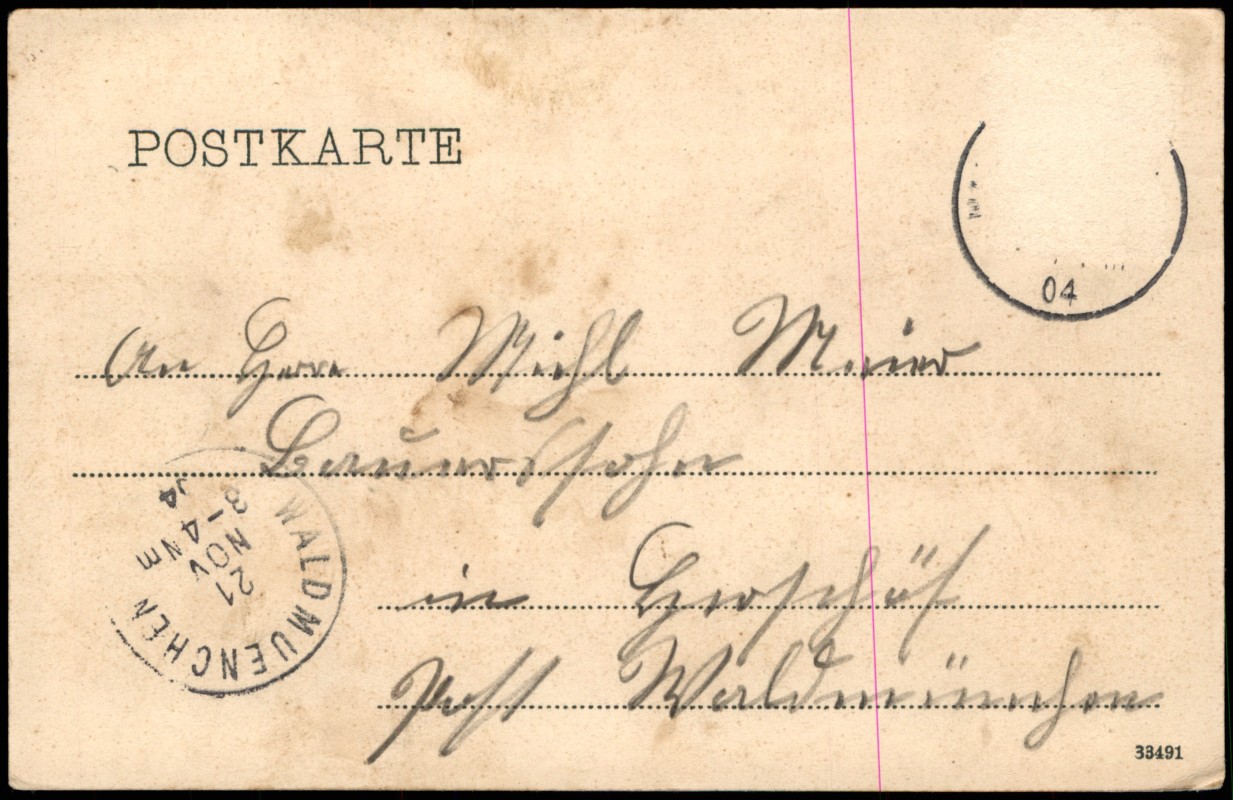 POSTKARTE
04
An Herrn Michl Meier
Bauerssohn
in
Post Waldmünchen
WALDMUENCHEN
21 NOV
3-4 NM
04
33491